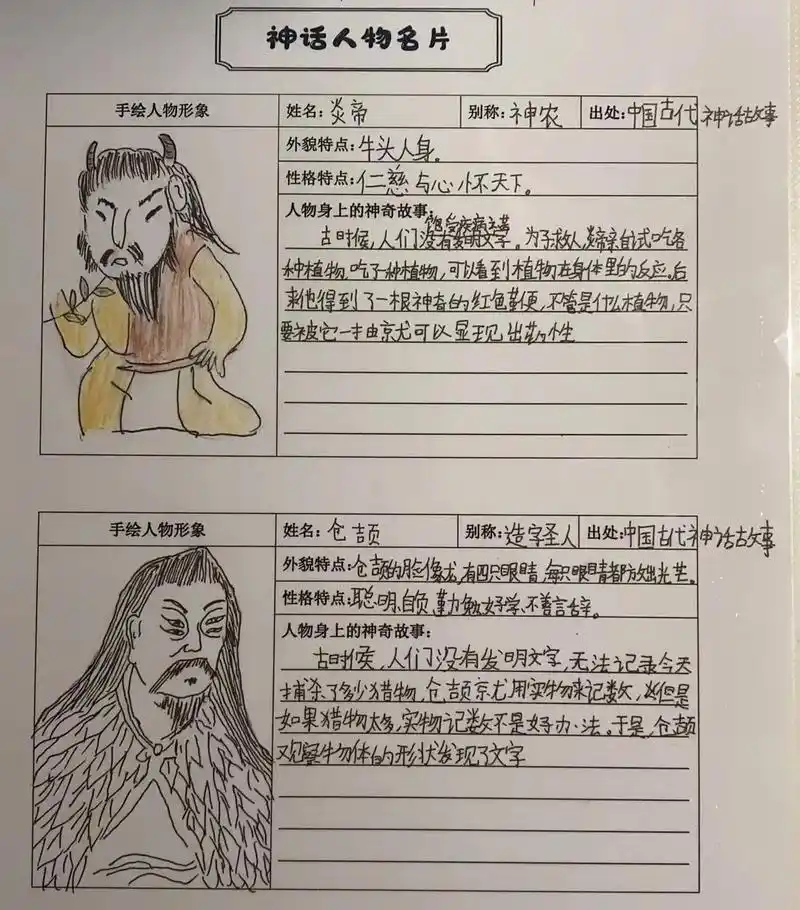 神话人物名片
手绘人物形象
姓名：炎帝
别称：神农
出处：中国古代神话故事
外貌特点：牛头人身。
性格特点：仁慈与心怀天下。
人物身上的神奇故事：
古时候，人们没有发明文字。为了救人，炎帝亲自试吃各
种植物，吃了种植物，可以看到植物在身体里的反应。后
来他得到了一根神奇的红色鞭，不管是什么植物，只
要被它一抽就可以显现出药性
手绘人物形象
姓名：仓颉
别称：造字圣人
出处：中国古代神话故事
外貌特点：仓颉的脸像龙，有四只眼睛，每只眼睛都放出光芒。
性格特点：聪明自负，勤勉好学，不善言辞。
人物身上的神奇故事：
古时候，人们没有发明文字，无法记录今天
捕杀了多少猎物，仓颉就用实物来记数，但是
如果猎物太多，实物记数不是好办法。于是，仓颉
观察物体的形状发现了文字